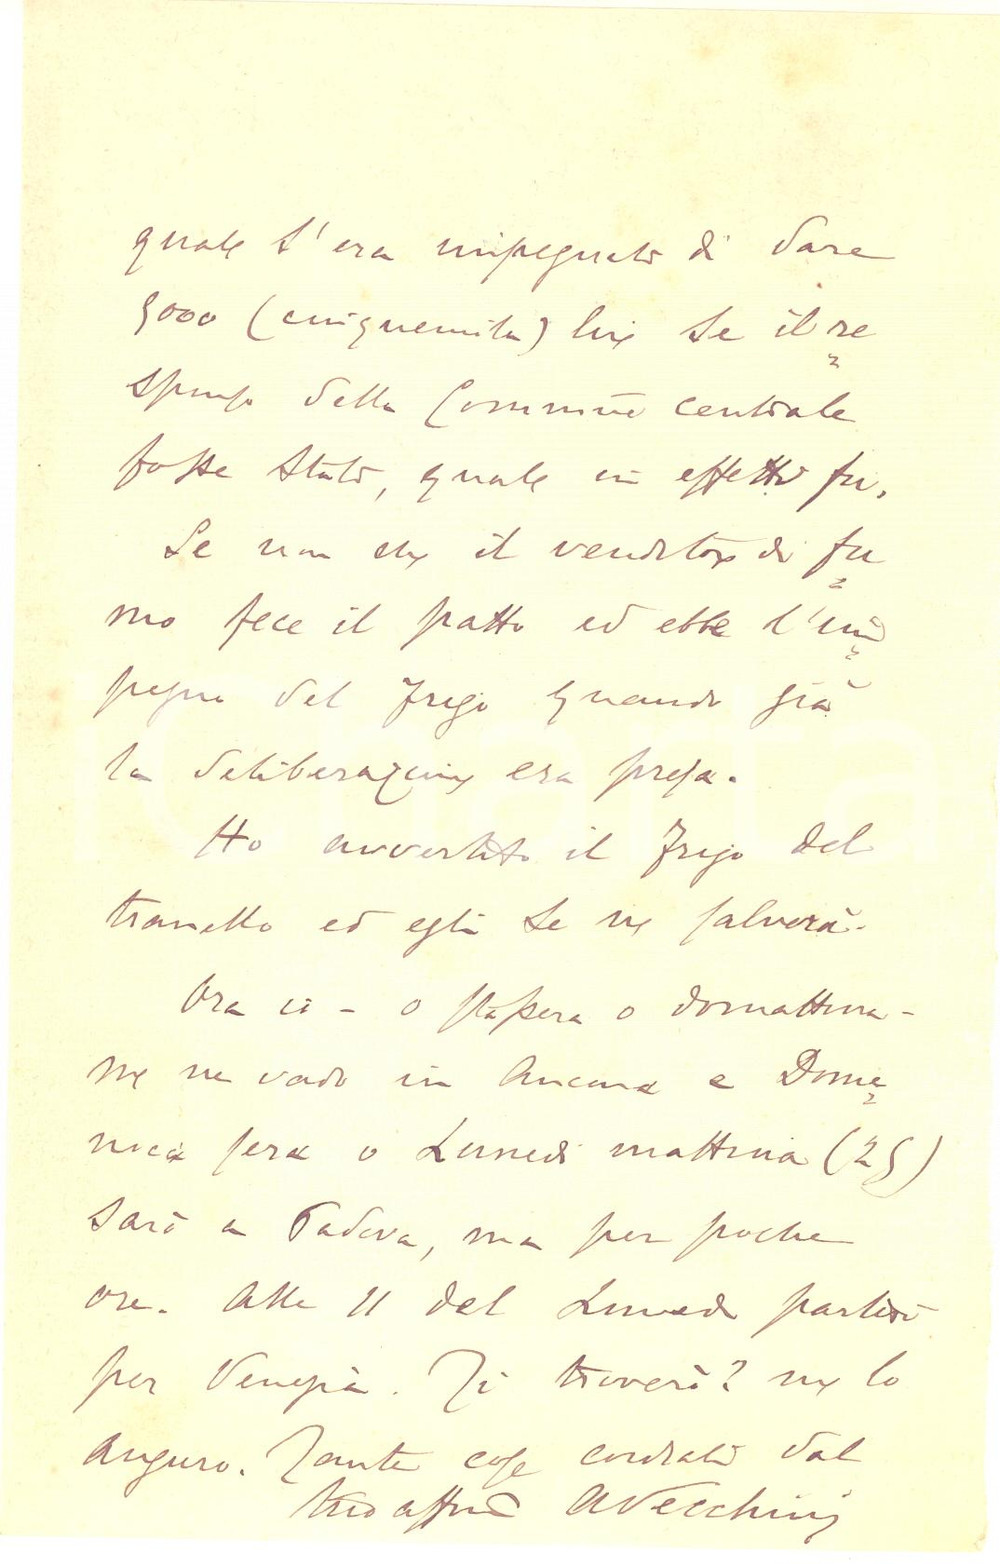 quale s'era impegnato di dare
5000 (cinquemila) lire se il re
sponso della Commne centrale
fosse stato, quale in effetto fu,
Se non che il venditore di fu
mo fece il patto ed ebbe l'im
pegno del Frigo quando già
la deliberazione era presa.
Ho avvertito il Frigo del
tranello ed egli se ne salverà.
Ora io - o stasera o domattina -
me ne vado in Ancona e Dome
nica sera o Lunedì mattina (25)
sarò a Padova, ma per poche
ore. Alle 11 del Lunedì partirò
per Venezia. Ti troverò? me lo
auguro. Tante cose cordiali dal
tuo affmo AVecchini